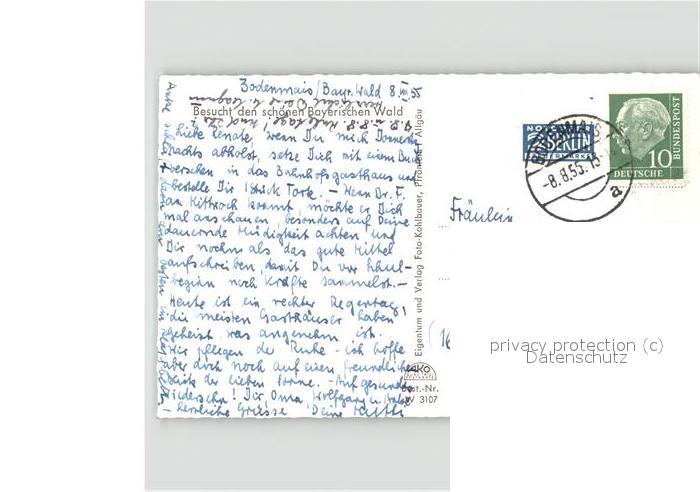 Bodenmais/Bayr. Wald 8.VIII.55
Besucht den schönen Bayerischen Wald
Liebe Renate, wenn Du mich Donnerstag
nachts abholst, setze Dich mit einem Buch
in das Bahnhofsgasthaus und
bestelle Dir 1 Stück Torte. – Wenn Dr. F.
am Mittwoch kommt, möchte er Dich
mal anschauen, besonders auf Deine
dauernde Müdigkeit achten und
Dir nochmals das gute Mittel
aufschreiben, damit Du vor Schul-
beginn noch Kräfte sammelst. –
Heute ist ein rechter Regentag,
die meisten Gasthäuser haben
geheizt, was angenehm ist.
Wir pflegen der Ruhe – ich hoffe
aber doch noch auf einen freundlichen
Blick der lieben Sonne. – Auf gesundes
Wiedersehn! Dir, Oma, Wolfgang u.
herzliche Grüsse Deine Mutti
Eigentum und Verlag Foto-Kohlbauer, Pfronten / Allgäu
AKO
Best.-Nr.
W 3107
NOTOPFER
2 BERLIN
STEUERMARKE
BODENMAIS
-8.8.55.
a
10
DEUTSCHE
BUNDESPOST
Fräulein
(16
privacy protection (c)
Datenschutz